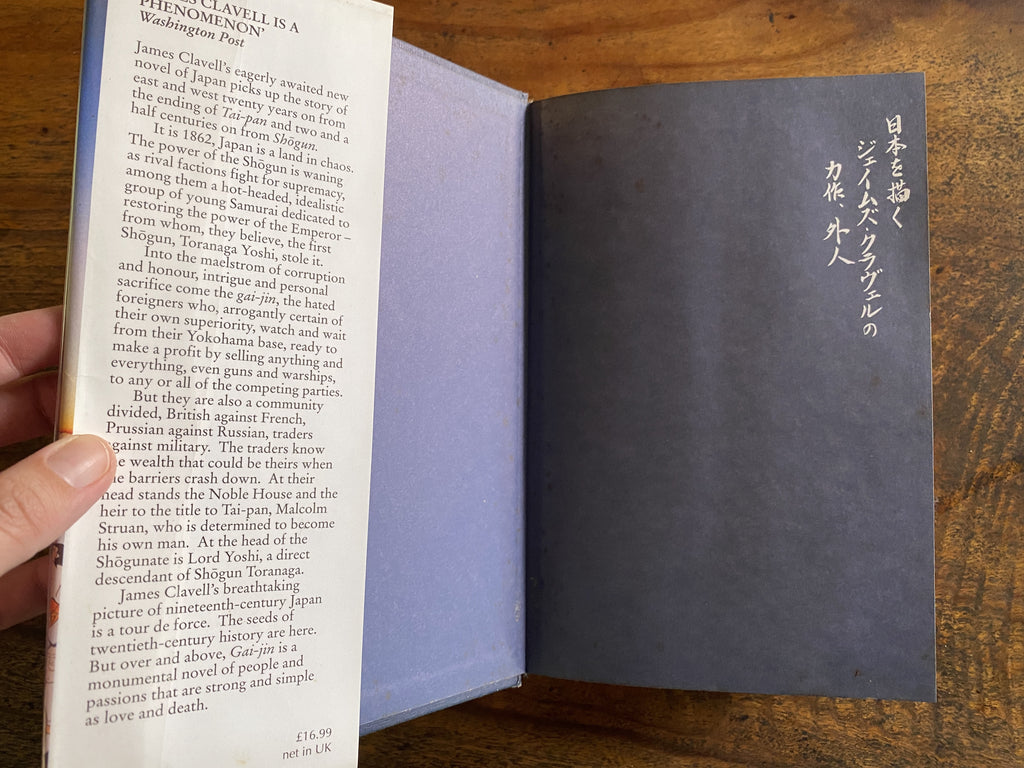 CLAVELL IS A
PHENOMENON'
Washington Post
James Clavell's eagerly awaited new
novel of Japan picks up the story of
east and west twenty years on from
the ending of Tai-pan and two and a
half centuries on from Shōgun.
It is 1862, Japan is a land in chaos.
The power of the Shōgun is waning
as rival factions fight for supremacy,
among them a hot-headed, idealistic
group of young Samurai dedicated to
restoring the power of the Emperor –
from whom, they believe, the first
Shōgun, Toranaga Yoshi, stole it.
Into the maelstrom of corruption
and honour, intrigue and personal
sacrifice come the gai-jin, the hated
foreigners who, arrogantly certain of
their own superiority, watch and wait
from their Yokohama base, ready to
make a profit by selling anything and
everything, even guns and warships,
to any or all of the competing parties.
But they are also a community
divided, British against French,
Prussian against Russian, traders
against military. The traders know
wealth that could be theirs when
barriers crash down. At their
head stands the Noble House and the
heir to the title to Tai-pan, Malcolm
Struan, who is determined to become
his own man. At the head of the
Shōgunate is Lord Yoshi, a direct
descendant of Shōgun Toranaga.
James Clavell's breathtaking
picture of nineteenth-century Japan
is a tour de force. The seeds of
twentieth-century history are here.
But over and above, Gai-jin is a
monumental novel of people and
passions that are strong and simple
as love and death.
£16.99
net in UK
日本を描く
ジェイムズ・クラヴェルの
力作、外人